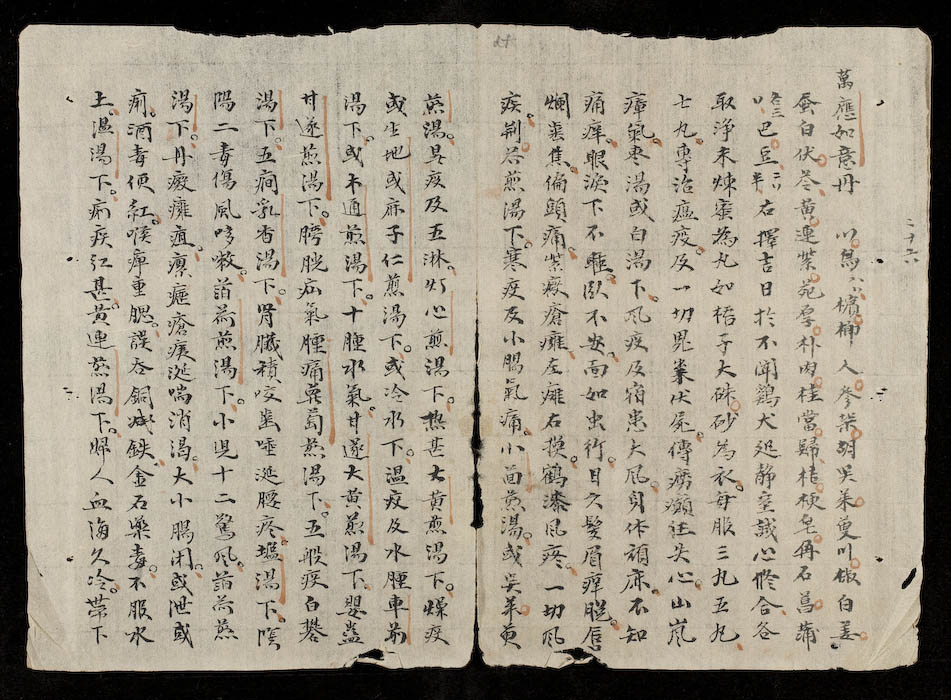 萬應如意丹 川烏 檳榔 人參柴胡吳茱萸川椒白姜
蚕白伏苓黃連紫苑厚朴肉桂當歸桔梗皂角石菖蒲
巴豆 右擇吉日於不聞鷄犬処静室誠心修合各
取淨末煉蜜為丸如梧子大硃砂為衣每服三丸五丸
七丸專治瘟疫及一切鬼祟伏屍傳癆癲狂失心山嵐
瘴氣枣湯或白湯下風疫及宿患大風身体頑痳不知
痛痒眼淚下不睡臥不安面如虫行目久髮眉痒脫唇
爛齒焦偏頭痛紫癜瘡癰左癱右摸鶴漆風疼一切風
疾荆芥煎湯下寒疫及小腸氣痛小茴煎湯或吳茱萸
煎湯 疫及五淋灯心煎湯下热甚大黃煎湯下燥疫
或生地或麻子仁煎湯下或冷水下温疫及水腫車前
湯下或木通煎湯下十腫水氣甘遂大黃煎湯下嬰蠱
甘遂煎湯下膀胱疝氣腫痛萆萄煎湯下五般疾白礬
湯下五癇乳香湯下腎臟積咬齒唾涎腰疼塩湯下陰
陽二毒傷風咳嗽薄荷煎湯下小児十二驚風薄荷煎
湯下丹癜癰疽瘰癧瘡痍涎喘消渴大小腸闭或泄或
痢酒毒便紅喉痺重腮誤吞銅 鉄金石藥毒不服水
土温湯下痢疾江甚黃連煎湯下婦人血海久冷帶下